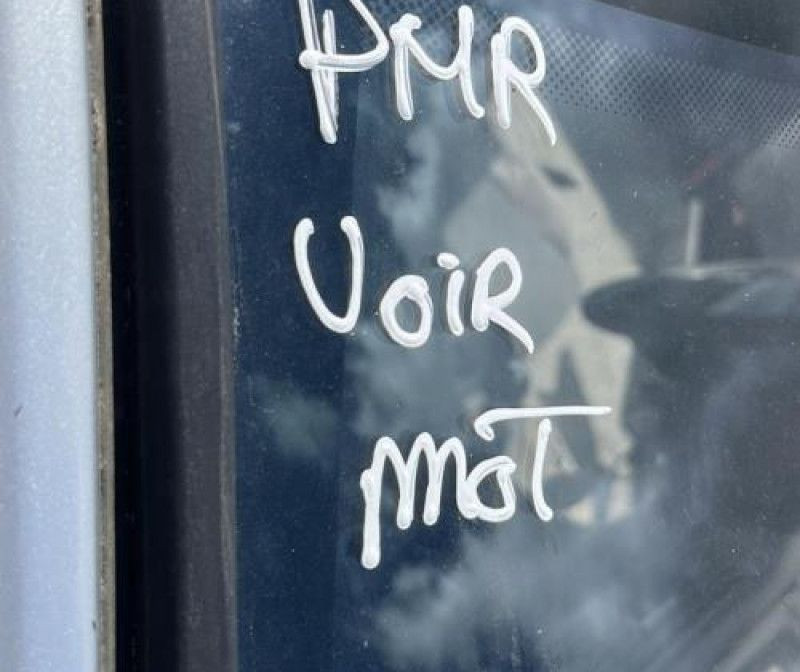 PMR
VOIR
mot